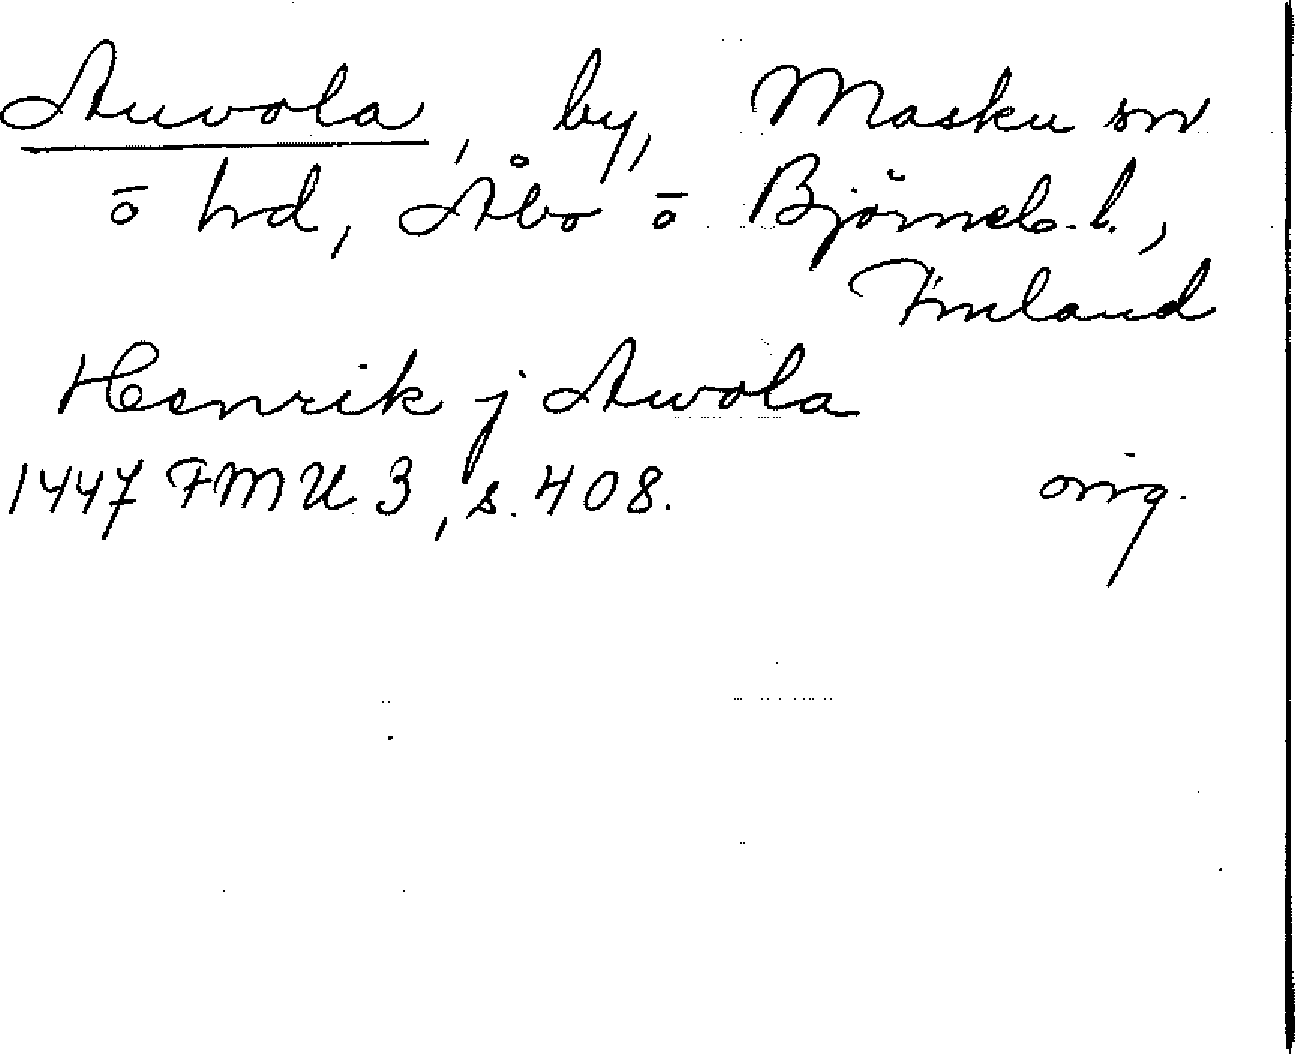 Auvola, by, Masku sn
ō hd, Åbo ō Björneb. l.,
Finland
Henrik j Awola
1447 FMU 3, s. 408. orig.